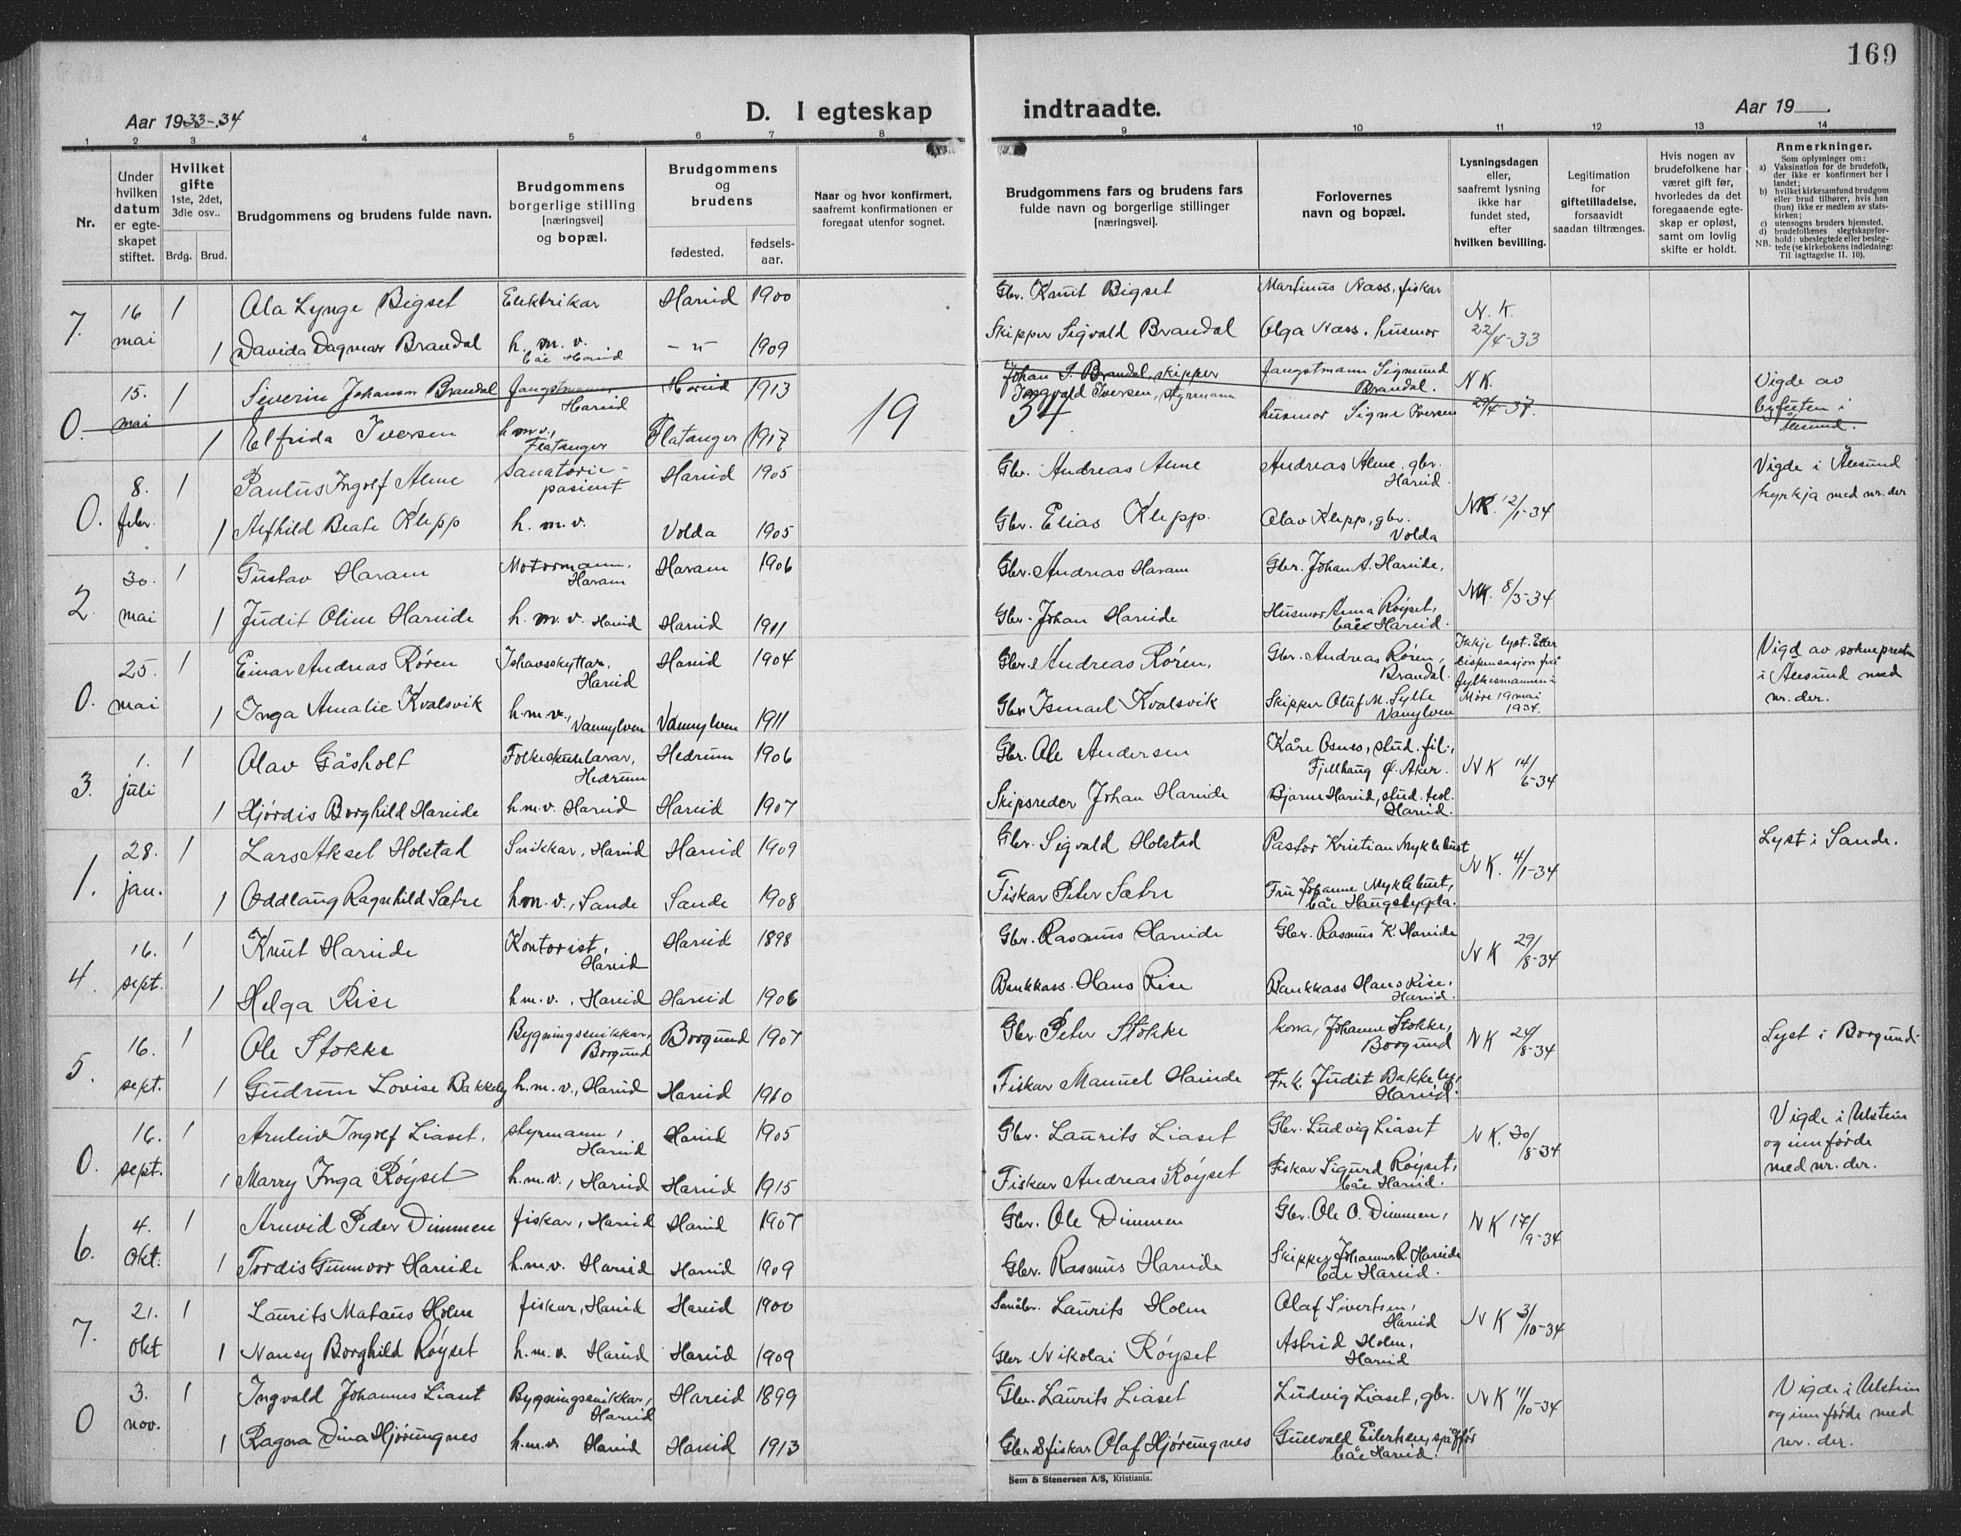 169
Aar 1933-34
D. I egteskap indtraadte.
Aar 19
1 2 3 4 5 6 7 8 9 10 11 12 13 14
Nr.
Under hvilken datum er egteskapet stiftet.
Hvilket gifte 1ste, 2det, 3die osv..
Brdg. Brud.
Brudgommens og brudens fulde navn.
Brudgommens borgerlige stilling [næringsvei] og bopæl.
Brudgommens og brudens
fødested.
fødselsaar.
Naar og hvor konfirmert, saafremt konfirmationen er foregaat utenfor sognet.
Brudgommens fars og brudens fars fulde navn og borgerlige stillinger [næringsvei].
Forlovernes navn og bopæl.
Lysningsdagen eller, saafremt lysning ikke har fundet sted, efter hvilken bevilling.
Legitimation for giftetilladelse, forsaavidt saadan tiltrænges.
Hvis nogen av brudefolkene har været gift før, hvorledes da det foregaaende egteskap er opløst, samt om lovlig skifte er holdt.
Anmerkninger.
Som oplysninger om:
a) Vaksination for de brudefolk, der ikke er konfirmert her i landet;
b) hvilket kirkesamfund brudgom eller brud tilhører, hvis han (hun) ikke er medlem av statskirken;
c) utensogns bruders hjemsted.
d) brudefolkenes slegtskapsforhold: ubeslegtede eller beslegtede (se kirkebokens indledning:
NB. Til iagttagelse II. 10).
7. 16 mai 1 Ola Lynge Bigset Elektrikar Hareid 1900 Gbr. Knut Bigset Martinus Nass, fiskar N.K. 22/4-33
1 Davida Dagmar Brandal h.m.v. båe Hareid -"- 1909 Skipper Sigvald Brandal Olga Nass, husmor
0. 15. mai 1 Severin Johanson Brandal fangstmann Hareid Hareid 1913 Johan S. Brandal, skipper fangstmann Sigmund Brandal. N K. 29/4-37. Vigde av byfuten i Ålesund.
1 Elfrida Iversen h.m.v., Flatanger Flatanger 1917 19 34 Ingvald Iversen, styrmann husmor Signe Iversen
0. 8. febr. 1 Paulus Ingolf Alme Sanatoriepasient Hareid 1905 Gbr. Andreas Alme Andreas Alme, gbr. Hareid. NK. 12/1-34 Vigde i Ålesund kyrkja med nr. der
1 Alfhild Beate Klepp h.m.v. Volda 1905 Gbr. Elias Klepp. Olav Klepp, gbr. Volda
2. 30. mai 1 Gustav Haram Motormann, Haram Haram 1906 Gbr. Andreas Haram Gbr. Johan A. Hareide, NK. 8/5-34
1 Judit Oline Hareide h.m.v. Hareid Hareid 1911 Gbr. Johan Hareide Husmor Anna Røyset, båe Hareid.
0. 25. mai 1 Einar Andreas Røren Ishavsskyttar, Hareid Hareid 1904 Gbr. Andreas Røren, Gbr. Andreas Røren, Brandal. Ikkje lyst. Etter dispensasjon frå fylkesmannen i Møre 19 mai 1934. Vigd av soknepresten i Ålesund med nr. der.
1 Inga Amalie Kvalsvik h.m.v., Vannylven Vannylven 1911 Gbr Ismael Kvalsvik Skipper Oluf M. Sylte Vanylven
3. 1. juli 1 Olav Gåsholt Folkeskulelærar, Hedrum Hedrum 1906 Gbr. Ole Andersen Kåre Osnes, stud. fil., Fjellhaug Ø. Aker. N K 14/6-34
1 Hjørdis Borghild Hareide h.m.v. Hareid Hareid 1907 Skipsreder Johan Hareide Bjarne Hareid, stud. teol. Hareid.
1. 28. jan. 1 Lars Aksel Holstad Snikkar, Hareid Hareid 1909 Gbr. Sigvald Holstad Pastor Kristian Myklebust N K. 4/1-34 Lyst i Sande.
1 Oddlaug Ragnhild Sætre h.m.v., Sande Sande 1908 Fiskar Peter Sætre Fru Johanne Myklebust, båe Haugsbygda.
4. 16. sept. 1 Knut Hareide Kontorist, Hareid Hareid 1898 Gbr. Rasmus Hareide Gbr. Rasmus K. Hareide N K 29/8-34
1 Helga Rise h.m.v., Hareid Hareid 1906 Bankkass. Hans Rise Bankkass Hans Rise, Hareid.
5. 16. sept. 1 Ole Stokke Bygningssnikkar, Borgund Borgund 1907 Gbr. Peter Stokke kona, Johanne Stokke, Borgund N K 24/8-34 Lyst i Borgund.
1 Gudrun Lovise Bakkeby h.m.v., Hareid Hareid 1910 Fiskar Manuel Hareide Frk. Judit Bakkeby, Hareid.
0. 16. sept. 1 Arnleiv Ingolf Liaset, styrmann, Hareid Hareid 1905 Gbr. Laurits Liaset Gbr. Ludvig Liaset N K. 30/8-34 Vigde i Ulstein og innførde med nr. der.
1 Marry Inga Røyset h.m.v., Hareid Hareid 1915 Fiskar Andreas Røyset Fiskar Sigurd Røyset, båe Hareid.
6. 4. Okt. 1 Arnvid Peder Dimmen fiskar, Hareid Hareid 1907 Gbr. Ole Dimmen Gbr. Ole O. Dimmen, N K 17/9-34
1 Tordis Gunnvor Hareide h.m.v. Hareid Hareid 1909 Gbr. Rasmus Hareide Skipper Johannes R. Hareide båe Hareid.
7. 21. Okt 1 Laurits Mataus Holm fiskar, Hareid Hareid 1900 Småbr. Laurits Holm Olaf Sivertsen, Hareid N K 3/10-34
1 Nansy Borghild Røyset h.m.v. Hareid Hareid 1909 Gbr Nikolai Røyset Astrid Holm, Hareid
0 3. nov. 1 Ingvald Johannes Liaset Bygningssnikkar, Hareid Hareid 1899 Gbr. Laurits Liaset Ludvig Liaset, gbr. N K 11/10-34 Vigde i Ulstein og innførde med nr. der.
1 Ragna Dina Hjørungnes h.m.v. Hareid Hareid 1913 Gbr & fiskar Olaf Hjørungnes Gullvald Eilertsen, sjåfør båe Hareid.
Sem & Stenersen A/S, Kristiania.